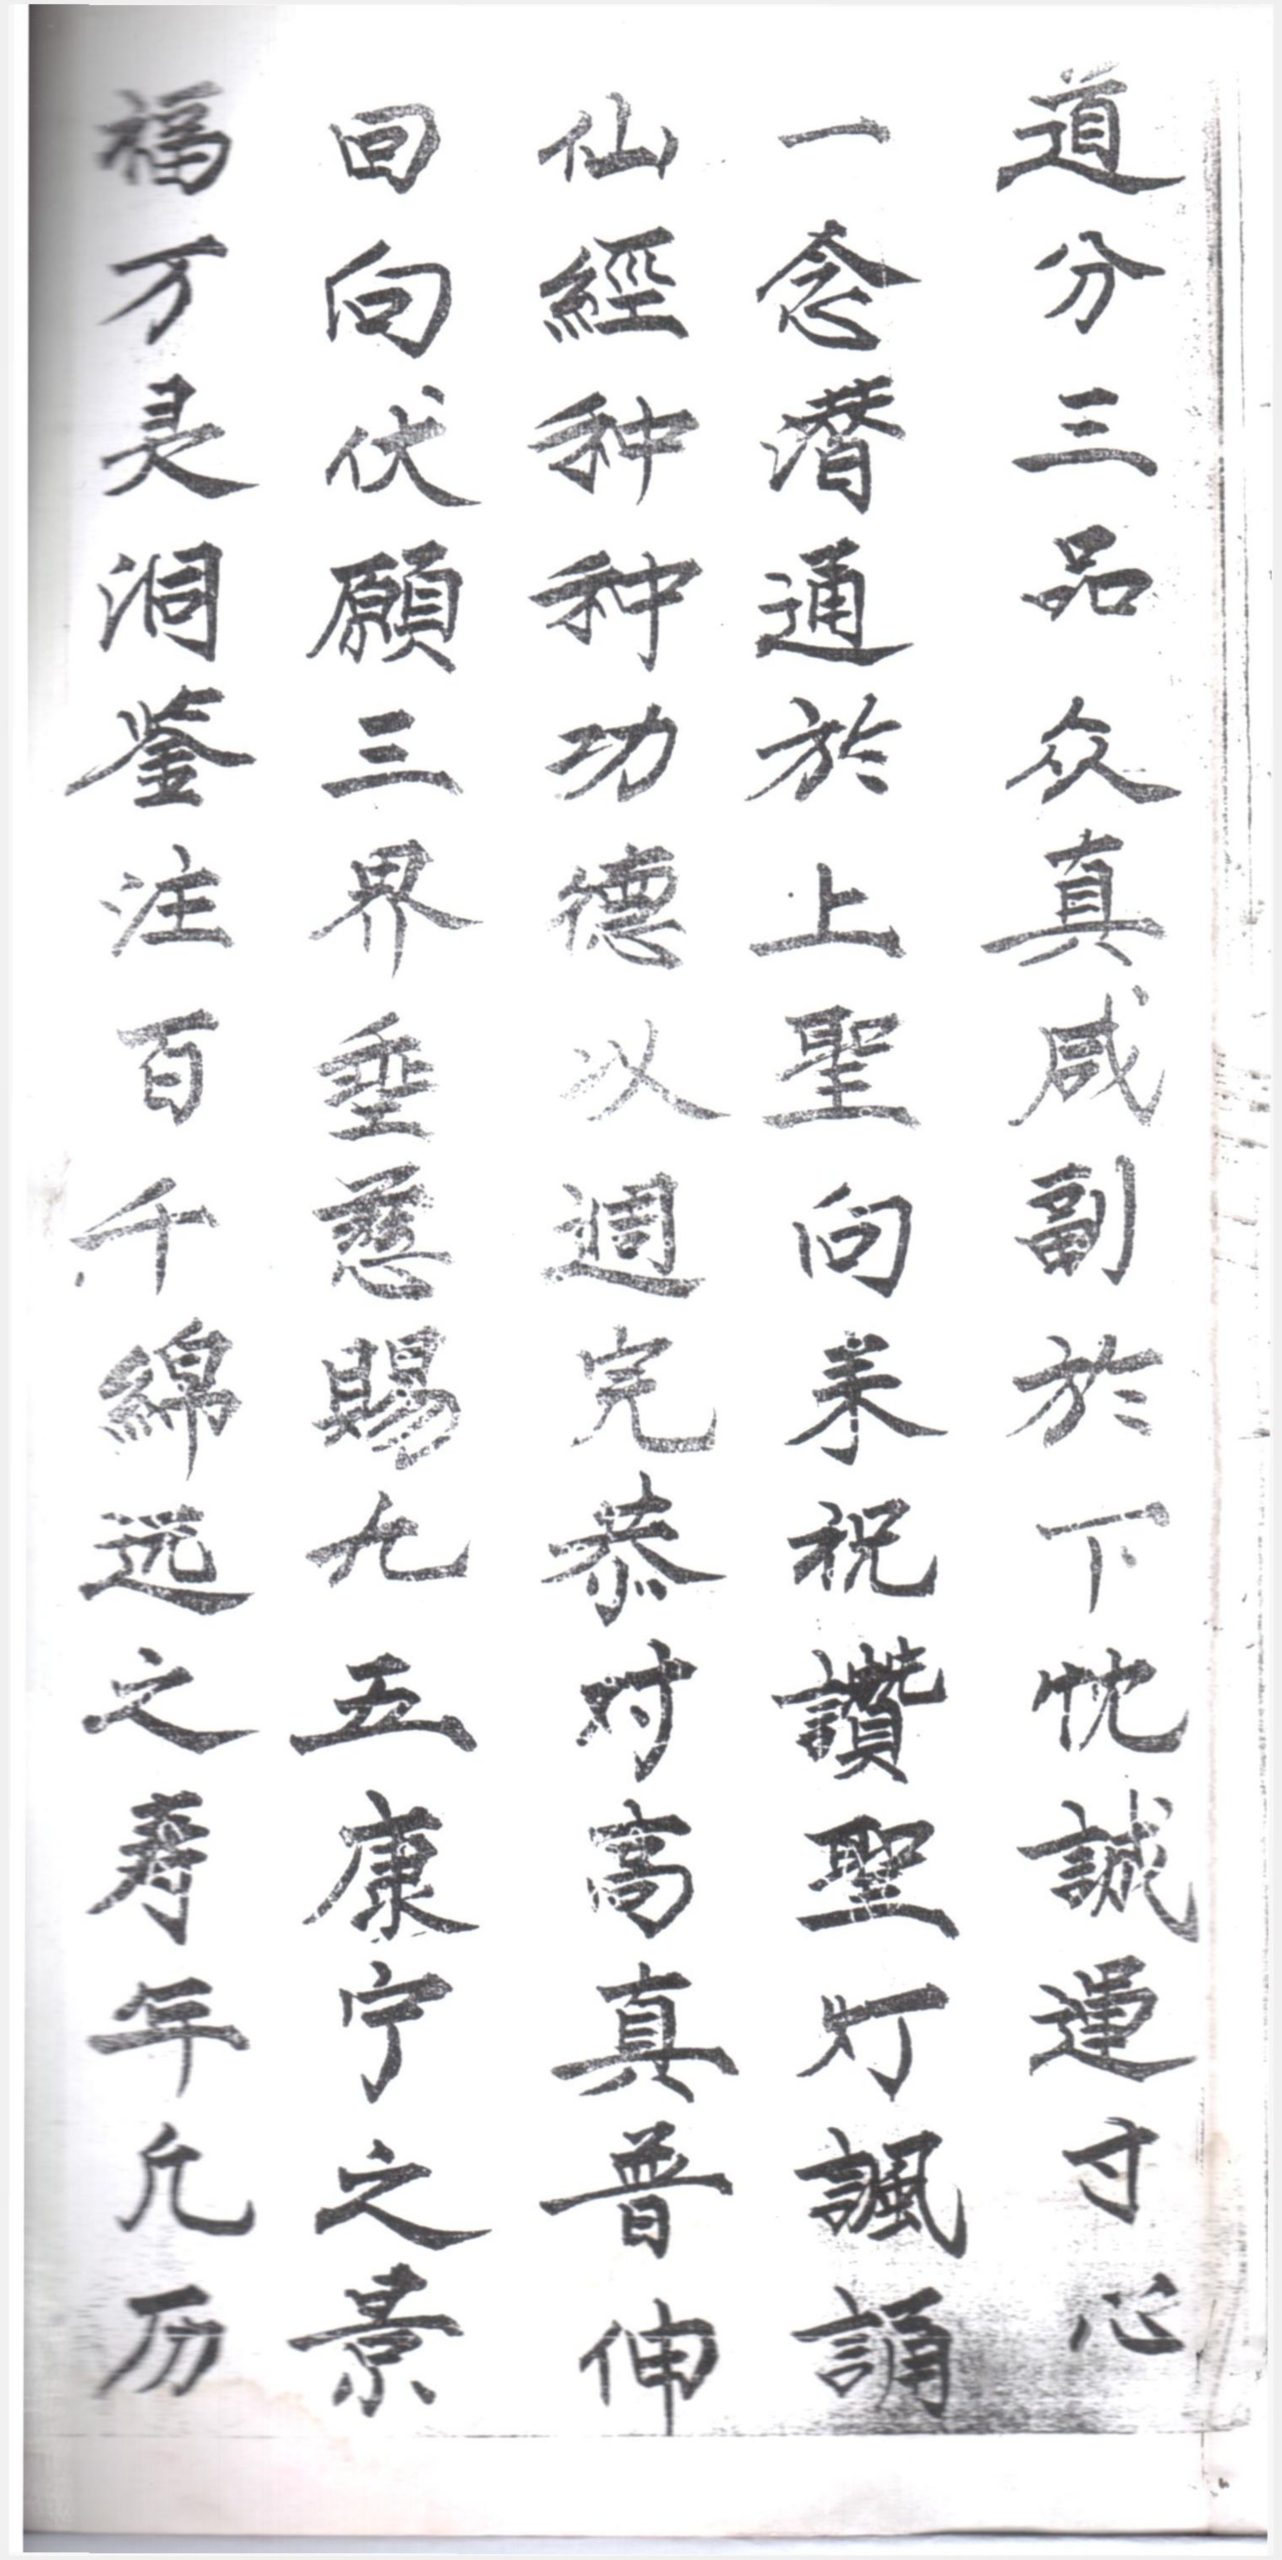 道分三品众真咸副於下忱誠運寸心
一念潛通於上聖向来祝讚聖灯諷誦
仙經种种功德以週完恭对高真普伸
回向伏願三界垂慈賜九五康宁之景
福万灵洞鉴注百千綿远之寿年允历